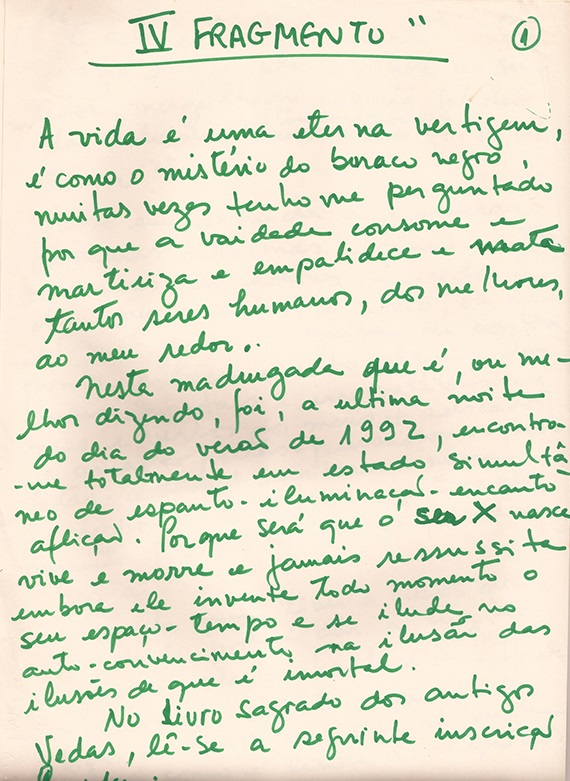 IV FRAGMENTO "
1
A vida é uma eterna vertigem,
é como o mistério do buraco negro,
muitas vezes tenho me perguntado
por que a vaidade consome e
martiriza e empalidece e mata
tantos seres humanos, dos melhores,
ao meu redor..
Nesta madrugada que é, ou me-
lhor dizendo, foi, a ultima noite
do dia do verão de 1992, encontro-
-me totalmente em estado simultâ-
neo de espanto-iluminação-encanto
aflição. Porque será que o ser X nasce
vive e morre e jamais ressussita
embora ele invente todo momento o
seu espaço-tempo e se ilude no
auto-convencimento na ilusão das
ilusões de que é imortal.
No livro sagrado dos antigos
Vedas, lê-se a seguinte inscrição